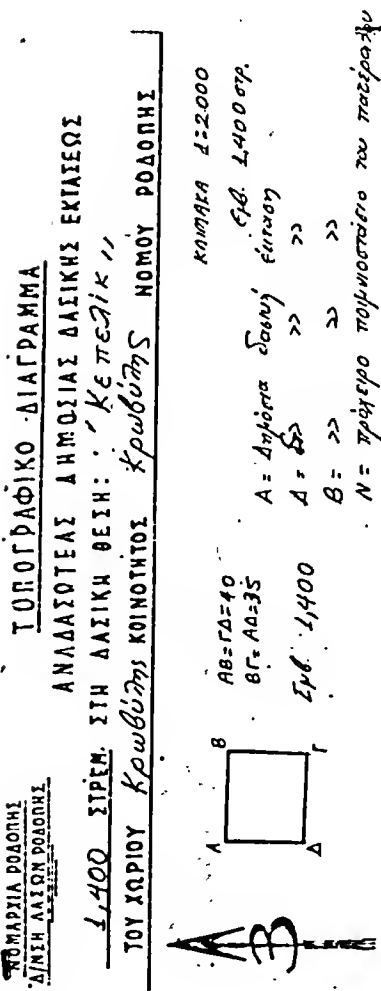 ΝΟΜΑΡΧΙΑ ΡΟΔΟΠΗΣ
Δ/ΝΣΗ ΔΑΣΩΝ ΡΟΔΟΠΗΣ
ΤΟΠΟΓΡΑΦΙΚΟ ΔΙΑΓΡΑΜΜΑ
ΑΝΑΔΑΣΩΤΕΑΣ ΔΗΜΟΣΙΑΣ ΔΑΣΙΚΗΣ ΕΚΤΑΣΕΩΣ
1,400 ΣΤΡΕΜ. ΣΤΗ ΔΑΣΙΚΗ ΘΕΣΗ: "Κεπελίκ"
ΤΟΥ ΧΩΡΙΟΥ Κρωβύλης ΚΟΙΝΟΤΗΤΟΣ Κρωβύλης ΝΟΜΟΥ ΡΟΔΟΠΗΣ
ΚΛΙΜΑΚΑ 1:2000
Εμβ. 1,400 στρ.
Α Β
Δ Γ
ΑΒ=ΓΔ=40
ΒΓ=ΑΔ=35
Εμβ. 1,400
Α = Δημόσια δασική έκταση
Δ = >> >> >>
Β = >> >> >>
Ν = πρόχειρο ποιμνιοστάσιο του
Β